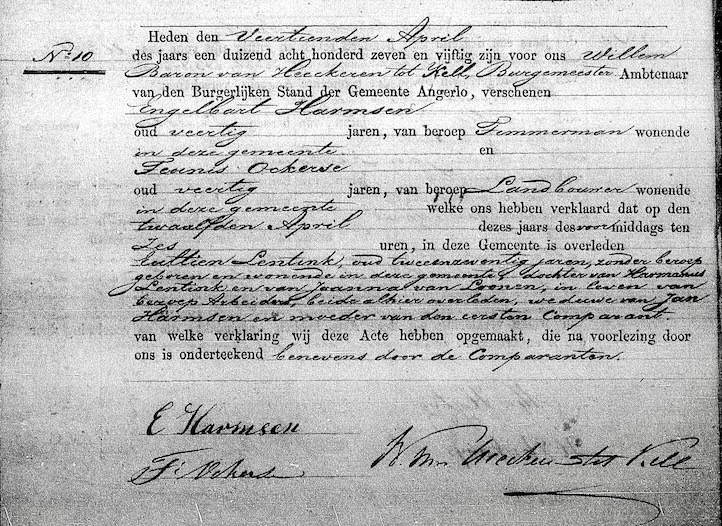 Heden den Veertienden April
No 10 des jaars een duizend acht honderd zeven en vijftig zijn voor ons Willem
Baron van Heeckeren tot Kell, Burgemeester Ambtenaar
van den Burgerlijken Stand der Gemeente Angerlo, verschenen
Engelbart Harmsen
oud veertig jaren, van beroep Timmerman wonende
in deze gemeente en
Teunis Ockerse
oud veertig jaren, van beroep Landbouwer wonende
in deze gemeente welke ons hebben verklaard dat op den
twaalfden April dezes jaars des voormiddags ten
Zes uren, in deze Gemeente is overleden
Lentink, oud tweeenzeventig jaren, zonder beroep
geboren en wonende in deze gemeente, dochter van Hermanus
Lentink en van Joanna van Loenen, in leven van
beroep Arbeiders, beide alhier overleden, weduwe van Jan
Harmsen en moeder van den eersten Comparant.
van welke verklaring wij deze Acte hebben opgemaakt, die na voorlezing door
ons is onderteekend benevens door de Comparanten.
E Harmsen
T. Ockerse
W. van Heeckeren tot Kell